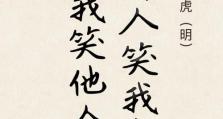 虎（明）
人笑我
我笑他人